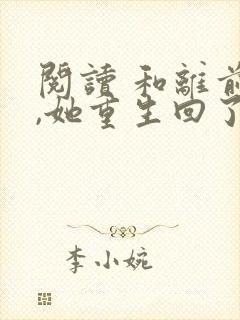 閱讀 和離前
,她重生回了
李小婉